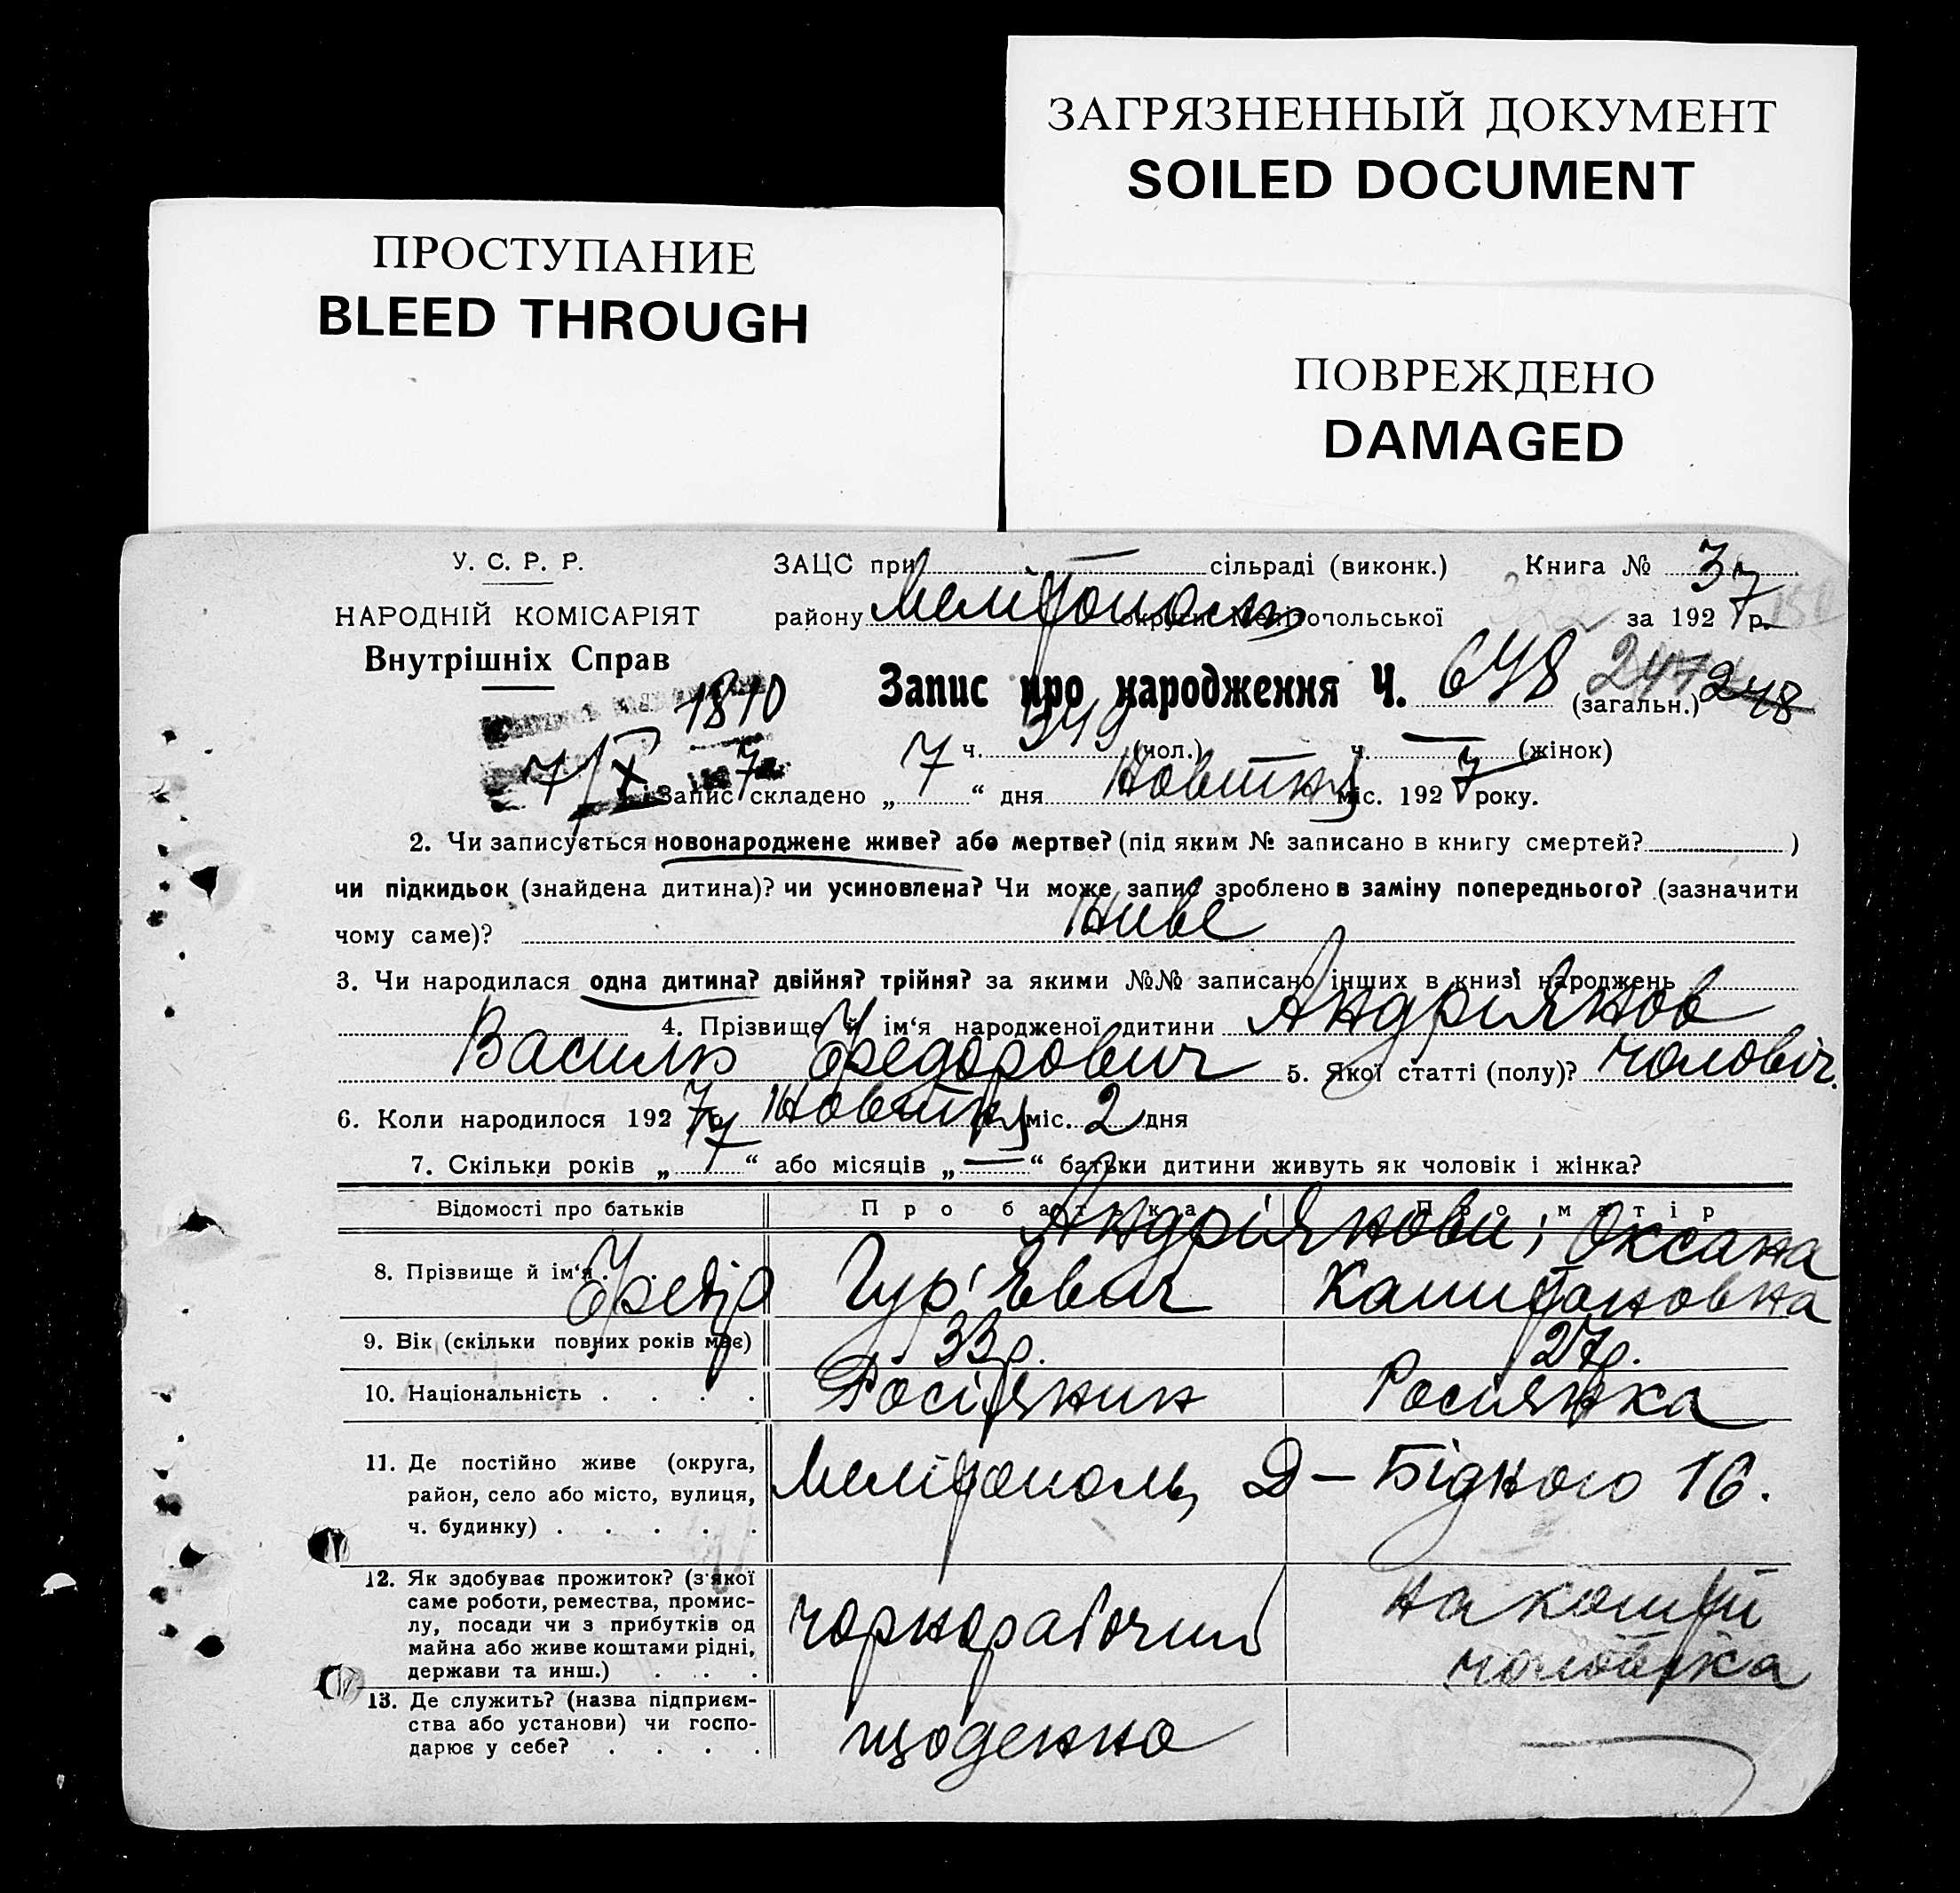 ЗАГРЯЗНЕННЫЙ ДОКУМЕНТ
SOILED DOCUMENT
ПРОСТУПАНИЕ
BLEED THROUGH
ПОВРЕЖДЕНО
DAMAGED
У. С. Р. Р.
НАРОДНІЙ КОМІСАРІЯТ
Внутрішніх Справ
ЗАЦС при — сільраді (виконк.) Книга № 3
району Мелітополь округи Мелітопольської за 1927 р.
1810
7/X 7
Запис про народження Ч. 648 (загальн.) 247 248
ч. 349 (чол.) ч. — (жінок)
Запис складено „7“ дня Жовтня міс. 1927 року.
2. Чи записується новонароджене живе? або мертве? (під яким № записано в книгу смертей? )
чи підкидьок (знайдена дитина)? чи усиновлена? Чи може запис зроблено в заміну попереднього? (зазначити
чому саме)? Живе
3. Чи народилася одна дитина? двійня? трійня? за якими №№ записано інших в книзі народжень
4. Прізвище й ім‘я народженої дитини Андріянов
Василь Федорович 5. Якої статті (полу)? чоловіч.
6. Коли народилося 1927 р. Жовтня міс. 2 дня
7. Скільки років „7“ або місяців „—“ батьки дитини живуть як чоловік і жінка?
Відомості про батьків Про батька Про матір
Андріянови;
8. Прізвище й ім‘я . . Федір Гур'євич Оксана Капитоновна
9. Вік (скільки повних років має) 33 р. 27 р.
10. Національність . . . . Росіянин Росиянка
11. Де постійно живе (округа,
район, село або місто, вулиця,
ч. будинку) . . . . .
Мелітополь, Д – Бідного 16.
12. Як здобуває прожиток? (з якої
саме роботи, ремества, промис-
лу, посади чи з прибутків од
майна або живе коштами рідні,
держави та инш.) . . .
чорнорабочий
на кошти
чоловіка
13. Де служить? (назва підприєм-
ства або установи) чи госпо-
дарює у себе? . . . .
щоденно